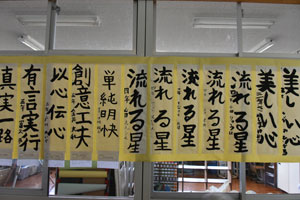 美しい心
美しい心
流れる星
流れる星
流れる星
流れる星
流れる星
単純明快
創意工夫
以心伝心
有言実行
真実一路